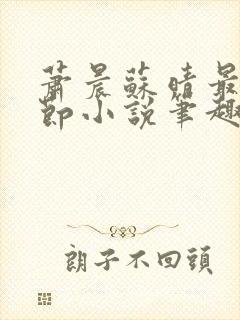 蕭晨蘇晴最
節小說筆趣
朗子不回頭